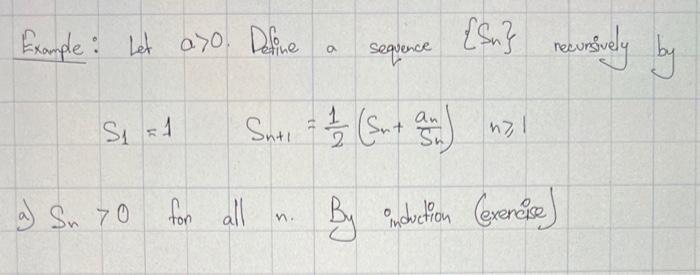 Example: Let a>0. Define a sequence {Sn} recursively by
S1 = 1 Sn+1 = 1/2 (Sn + an/Sn) n≥1
a) Sn > 0 for all n. By induction (exercise)